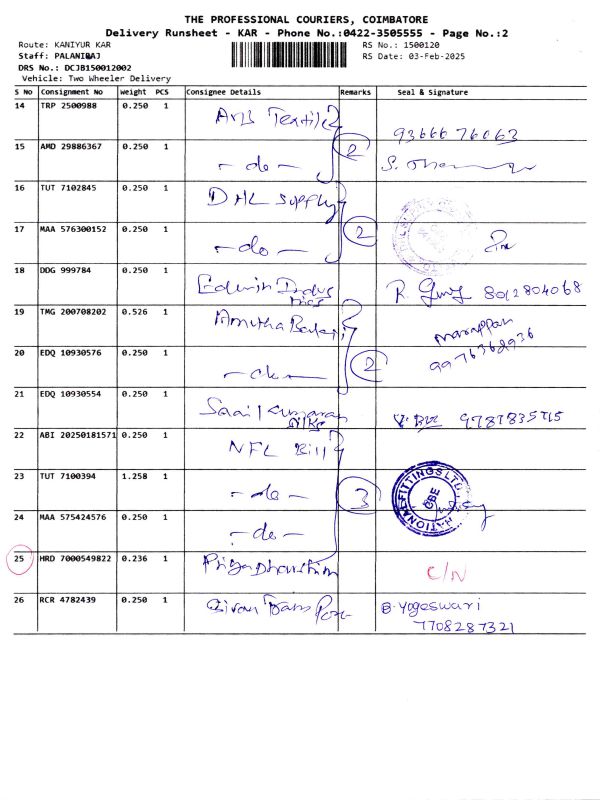 THE PROFESSIONAL COURIERS, COIMBATORE
Delivery Runsheet - KAR - Phone No.:0422-3505555 - Page No.:2
Route: KANIYUR KAR RS No.: 1500120
Staff: PALANIRAJ RS Date: 03-Feb-2025
DRS No.: DCJB150012002
Vehicle: Two Wheeler Delivery
S NO Consignment No Weight PCS Consignee Details Remarks Seal & Signature
14 TRP 2500988 0.250 1 Textile 9366676063
15 AMD 29886367 0.250 1 - do - 2 S.
16 TUT 7102845 0.250 1 DHL Supply
17 MAA 576300152 0.250 1 - do - 2
18 DDG 999784 0.250 1 Edwin Indus R 8012804068
19 TMG 200708202 0.526 1 Amutha
20 EDQ 10930576 0.250 1 - do - 2 9976368936
21 EDQ 10930554 0.250 1 Kumaran
22 ABI 20250181571 0.250 1 NFL Bill
23 TUT 7100394 1.258 1 - do - 3 NATIONAL FITTINGS LTD CBE
24 MAA 575424576 0.250 1 - do -
25 HRD 7000549822 0.236 1 C/N
26 RCR 4782439 0.250 1 B. Yogeswari
7708287321